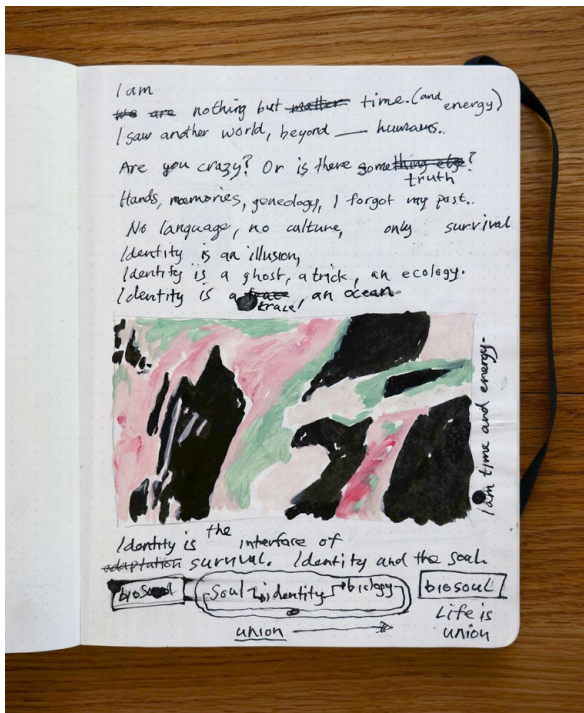 I am
we are nothing but matter time. (and energy)
I saw another world, beyond — humans..
Are you crazy? Or is there something else?
truth
Hands, memories, geneology, I forgot my past..
No language, no culture, only survival
Identity is an illusion,
Identity is a ghost, a trick, an ecology.
Identity is a trace, an ocean
I am time and energy.
Identity is the interface of
adaptation survival. Identity and the soul.
biosoul soul identity biology biosoul
union
Life is
union